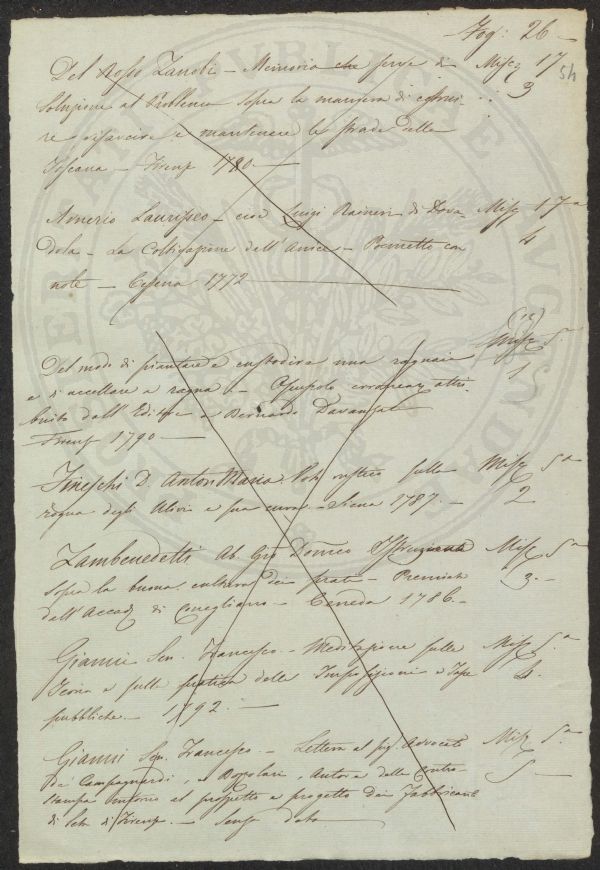 Fog: 26
Del Rosso Zanobi - Memoria che serve di Misc 17
54
soluzione al Problema sopra la maniera di costrui- 3
re risarcire e mantenere le strade della
Toscana - Firenze 1780 -
Amerio Laurisseo - cioè Luigi Raineri di Dova- Misc 17a
dola - La Coltivazione dell'Anice - Poemetto con 4
note - Cesena 1772
Del modo di piantare e custodire una ragnaia Misc 5.
e di uccellare a ragna - Opuscolo erroneam. attri- 1
buito dall'Editore a Bernardo Davanzati
Firenze 1790 -
Fineschi D. Anton Maria sulla Misc 5a
rogna degli Ulivi e sua cura - Siena 1787. - 2
Zambenedetti Ab. Gio Domco Istruzione Misc 5a
sopra la buona cultura dei prati - Premiata 3. -
dall'Accad di Conegliano - Ceneda 1786. -
Gianni Sen. Francesco - Meditazione sulla Misc 5.a
Teoria e sulla pratica delle Imposizioni e Tasse 4.
pubbliche. - 1792. -
Gianni Sen. Francesco - Lettera al sig. Advocato Misc 5a
de Campagnardi, e Autore della contro- 5 -
stampa intorno al prospetto e progetto dei Fabbricanti
di Seta di Firenze. - senza data